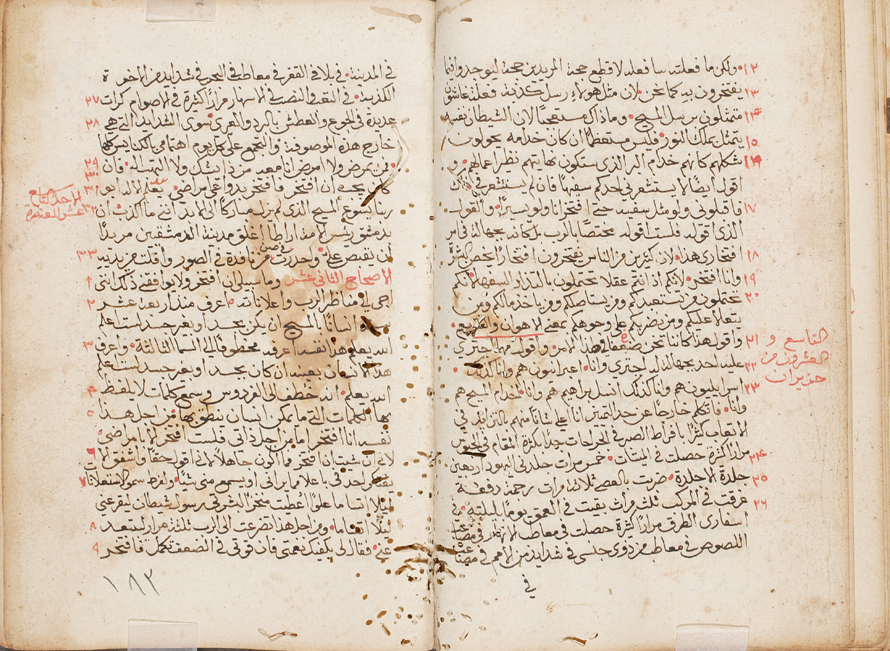 ولكن ما فعلته سافعله لاقطع حجة المريدين حجة ليوجدوا فيما ١٢
يفتخرون به كما نحن لان مثل هولاء رسل كذبة فعلة غاشون ١٣
متمثلون برسل المسيح وما ذاك مستعجبا لان الشيطان نفسه ١٤
يتمثل بملك النور فليس مستعظما ان كان خدامه يحولون ١٥
شكلهم كانهم خدام البر الذي ستكون نهايتهم نظير اعمالهم و ١٦
اقول ايضا لا يستشعرني احدكم سفيها فان لم
فاقبلوني ولو مثل سفيه حتى افتخر انا ولو يسيرا والقول ١٧
الذي اقوله فلست اقوله مختصا بالرب بل كانه بجهالة في امر
افتخاري هذا لان كثيرين من الناس يفتخرون افتخارا ١٨
وانا افتخر لانكم اذ انتم عقلا تحتملون بالتذاذ السفها لانكم ١٩
تحتملون من يستعبدكم ومن يستاصلكم ومن ياخذ مالكم ومن ٢٠
يتعالا عليكم ومن يضربكم على وجوهكم بمعنى الاهوان
واقول هذا كاننا نحن ضعفا في هذا الامر واقول مهما اجتري ٢١
عليه احد بجهالة اجتري وانا اعبرانيون هم وانا كذلك ٢٢
اسراييليون هم وانا كذلك انسل ابراهيم هم وانا خدم المسيح هم ٢٣
وانا فاتكلم خارجا عن حد اليقين انا اعلى شانا منهم بالتزايد في
الاتعاب كثيرا بافراط الصبر في الجراحات جدا بكثرة المقام في الحبوس
مرارا كثيرة حصلت في الميتات خمس مرات جلدني اليهود اربعين ٢٤
جلدة الا جلدة ضربت بالعصي ثلاث مرات رجمت دفعة ٢٥
غرقت في المركب ثلث مرات بقيت في العمق يوما بليلته في ٢٦
اسفاري الطرق مرارا كثيرة حصلت في معاطب الانهار في
اللصوص في معاطب من ذوي جنسي في شدايد من الامم في
في
التاسع و
العشرون من
حزيران
في المدينة في بلايا في القفر في معاطب في البحر في شدايد من الاخوة
الكذبة في التعب والنصب في الاسهار مرارا كثيرة في الاصوام كرات ٢٧
عديدة في الجوع والعطش بالبرد والعري سوى الشدايد التي هي ٢٨
خارج هذه الموصوفة والتجمع علي كل يوم اهتمامي بالكنايس كلها
فمن يمرض ولا امرض انا معه من ذا يشك ولا التهب انا فان ٢٩
كان يجب ان افتخر فافتخر بدواعي امراضي يعلم الاله ابو ٣١
ربنا يسوع المسيح الذي لم يزل مباركا الى الابد انني ما اكذب ان ٣٢
بدمشق رييس الامة ارطا اغلق مدينة الدمشقيين مريدا
ان يقبض علي وحدرت من نافذة في الصور وافلت من يديه ٣٣
الاصحاح الثاني عشر وما سبيلي ان افتخر ولا يوافقني ذلك لانني
اجي الى مناظر الرب واعلاناته اعرف منذ اربعة عشر ٢
سنة انسانا بالمسيح ان يكن بجسد او بغير جسد لست اعلم
الله يعلم هذا نفسه اعرفه مخطوفا الى السما الثالثة واعرف ٣
هذا الانسان بعينه ان كان بجسد او بغير جسد لست اعلم
الله يعلم انه خطف الى الفردوس وسمع كلمات لا يلفظ ٤
بها الكلمات التي ما يمكن انسان ينطق بها من اجل هذا ٥
نفسه انا افتخر اما من اجل ذاتي فلست افتخر الا بامراضي
لاني ان شيت ان افتخر فما اكون جاهلا لاني اقول حقا واشفق الا ٦
يفتكر احد في باعلا مما يراني او يسمع مني شيا ولفرط سمو الاستعلانات ٧
ليلا اتسامى علوا اعطيت منخز البشرى رسول شيطان ليقرعني
ليلا اتسامى ومن اجل هذا تضرعت الى الرب ثلثة مرار ليبتعد ٨
عني فقال لي يكفيك نعمتي فان قوتي في الضعف تكمل فافتخر ٩
لاحد
عشر للعنصرة
١٨٣